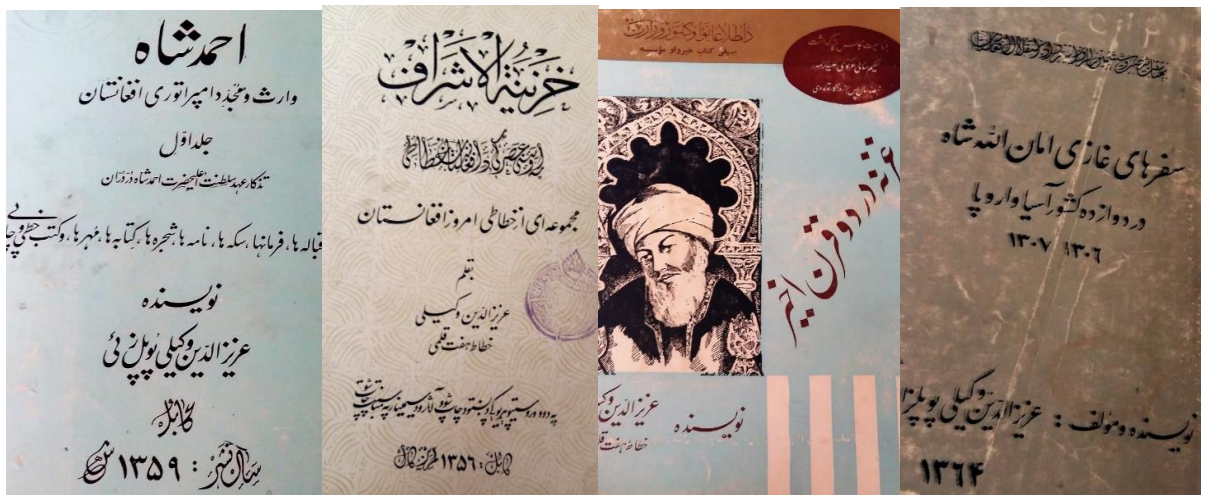 احمدشاه
وارث و مجدد امپراتوری افغانستان
جلد اول
تذکار عهد سلطنت اعلیحضرت احمدشاه دردران
قباله ها، فرمانها، سکه ها، نامه ها، شجره ها، کتابه ها، مهرها، وکتب خطی و
نویسنده
عزیزالدین وکیلی پوپلزئی
کابل
سال نشر: ۱۳۵۹ ش
خزینة الاشراف
مجموعه‌ای از خطاطی امروز افغانستان
بقلم
عزیزالدین وکیلی
خطاط هفت قلمی
کابل: ۱۳۵۶
د اطلاعاتو او کلتور وزارت
بیهقی کتاب خپرولو مؤسسه
غزنه در دو قرن اخیر
نویسنده عزیزالدین
خطاط هفت
سفرهای غازی امان الله شاه
در دوازده کشور آسیا و اروپا
۱۳۰۶ ۱۳۰۷
نویسنده و مؤلف: عزیزالدین وکیلی پوپلز
۱۳۶۴